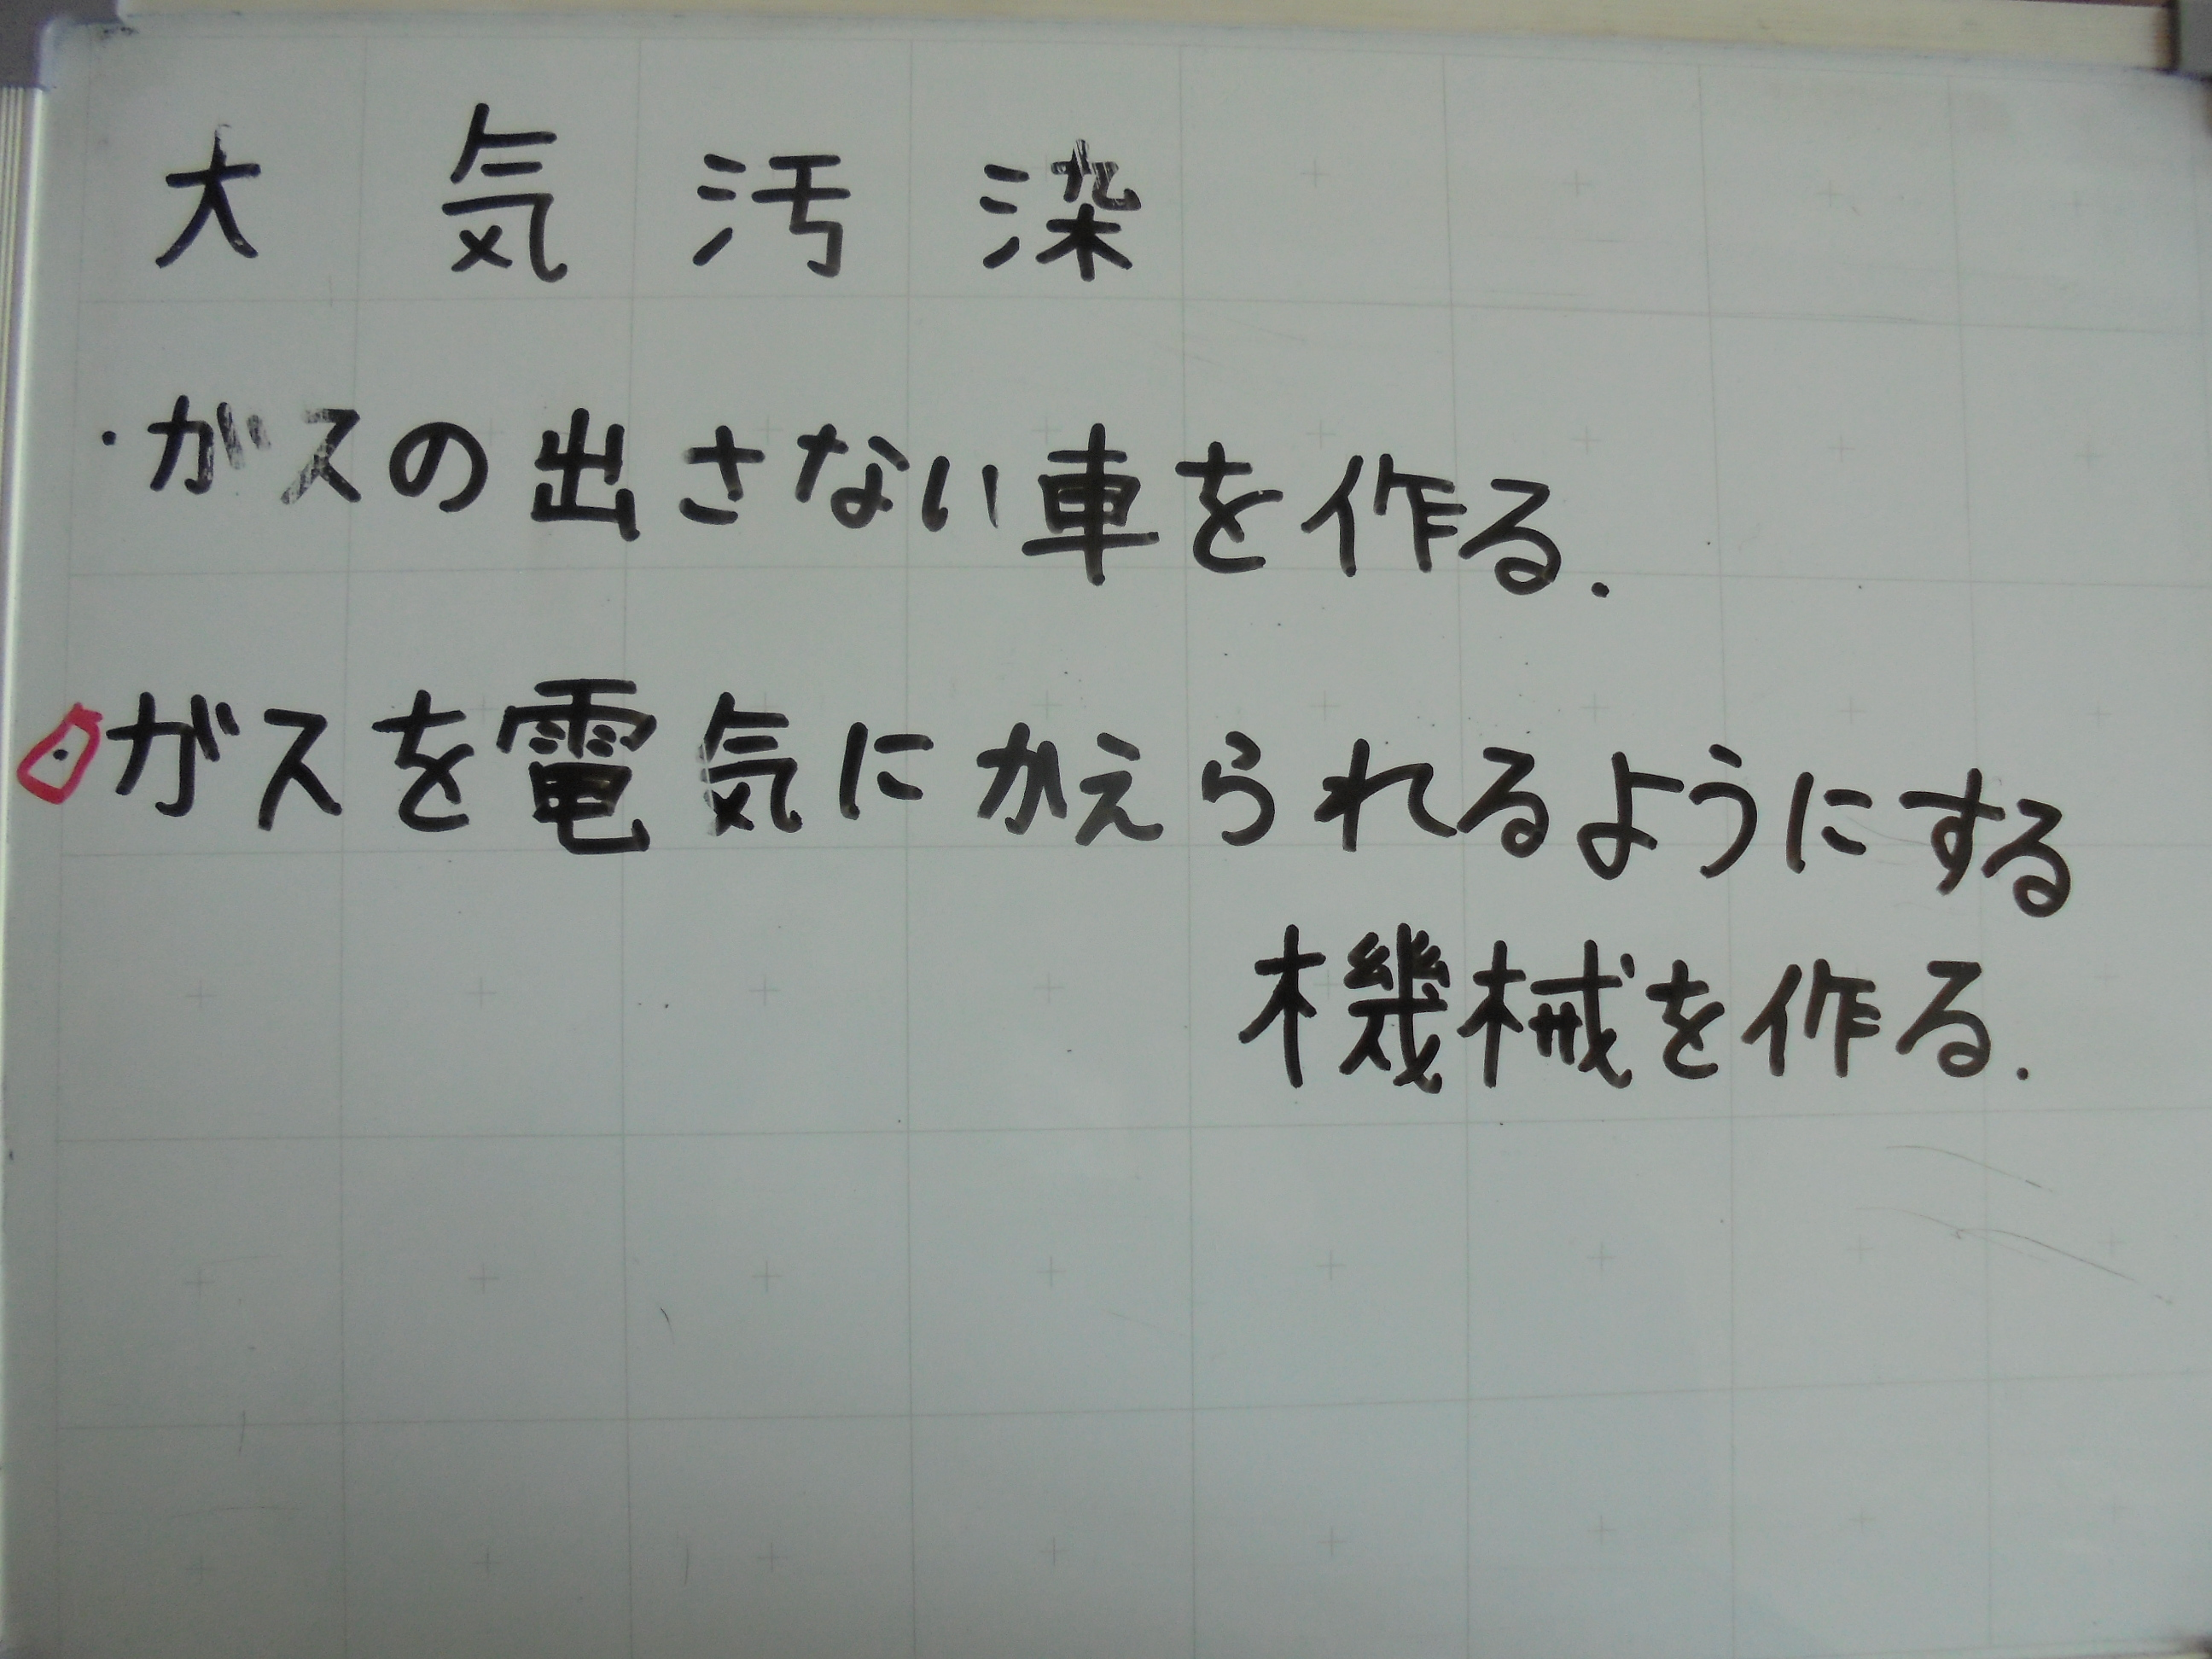 大気汚染
・ガスの出さない車を作る.
・ガスを電気にかえられるようにする
機械を作る.